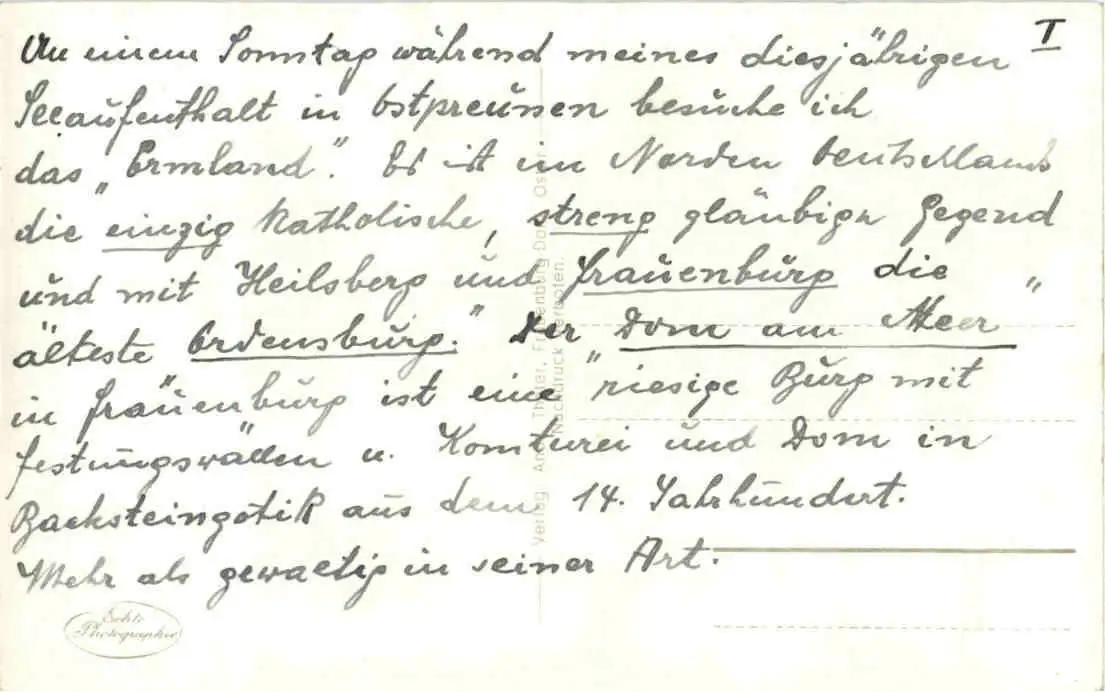 I
An einem Sonntag während meines diesjährigen
Seeaufenthalt in Ostpreußen besuche ich
das „Ermland". Es ist im Norden Deutschlands
die einzig katholische, streng gläubige Gegend
und mit Heilsberg und Frauenburg die
älteste Ordensburg." Der „Dom am Meer"
in Frauenburg ist eine riesige Burg mit
Festungswällen u. Komturei und Dom in
Backsteingotik aus dem 14. Jahrhundert.
Mehr als gewaltig in seiner Art.
Echte
Photographie
Verlag: Frauenburg Dom, Ostpr.
Nachdruck verboten.